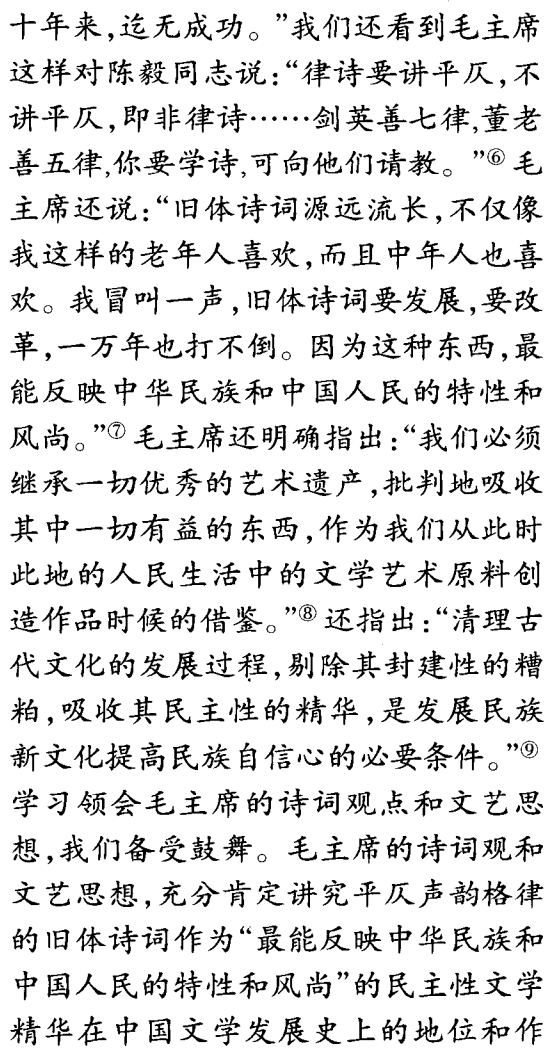 十年来,迄无成功。”我们还看到毛主席
这样对陈毅同志说:“律诗要讲平仄,不
讲平仄,即非律诗……剑英善七律,董老
善五律,你要学诗,可向他们请教。”⑥ 毛
主席还说:“旧体诗词源远流长,不仅像
我这样的老年人喜欢,而且中年人也喜
欢。我冒叫一声,旧体诗词要发展,要改
革,一万年也打不倒。因为这种东西,最
能反映中华民族和中国人民的特性和
风尚。”⑦ 毛主席还明确指出:“我们必须
继承一切优秀的艺术遗产,批判地吸收
其中一切有益的东西,作为我们从此时
此地的人民生活中的文学艺术原料创
造作品时候的借鉴。”⑧ 还指出:“清理古
代文化的发展过程,剔除其封建性的糟
粕,吸收其民主性的精华,是发展民族
新文化提高民族自信心的必要条件。”⑨
学习领会毛主席的诗词观点和文艺思
想,我们备受鼓舞。毛主席的诗词观和
文艺思想,充分肯定讲究平仄声韵格律
的旧体诗词作为“最能反映中华民族和
中国人民的特性和风尚”的民主性文学
精华在中国文学发展史上的地位和作